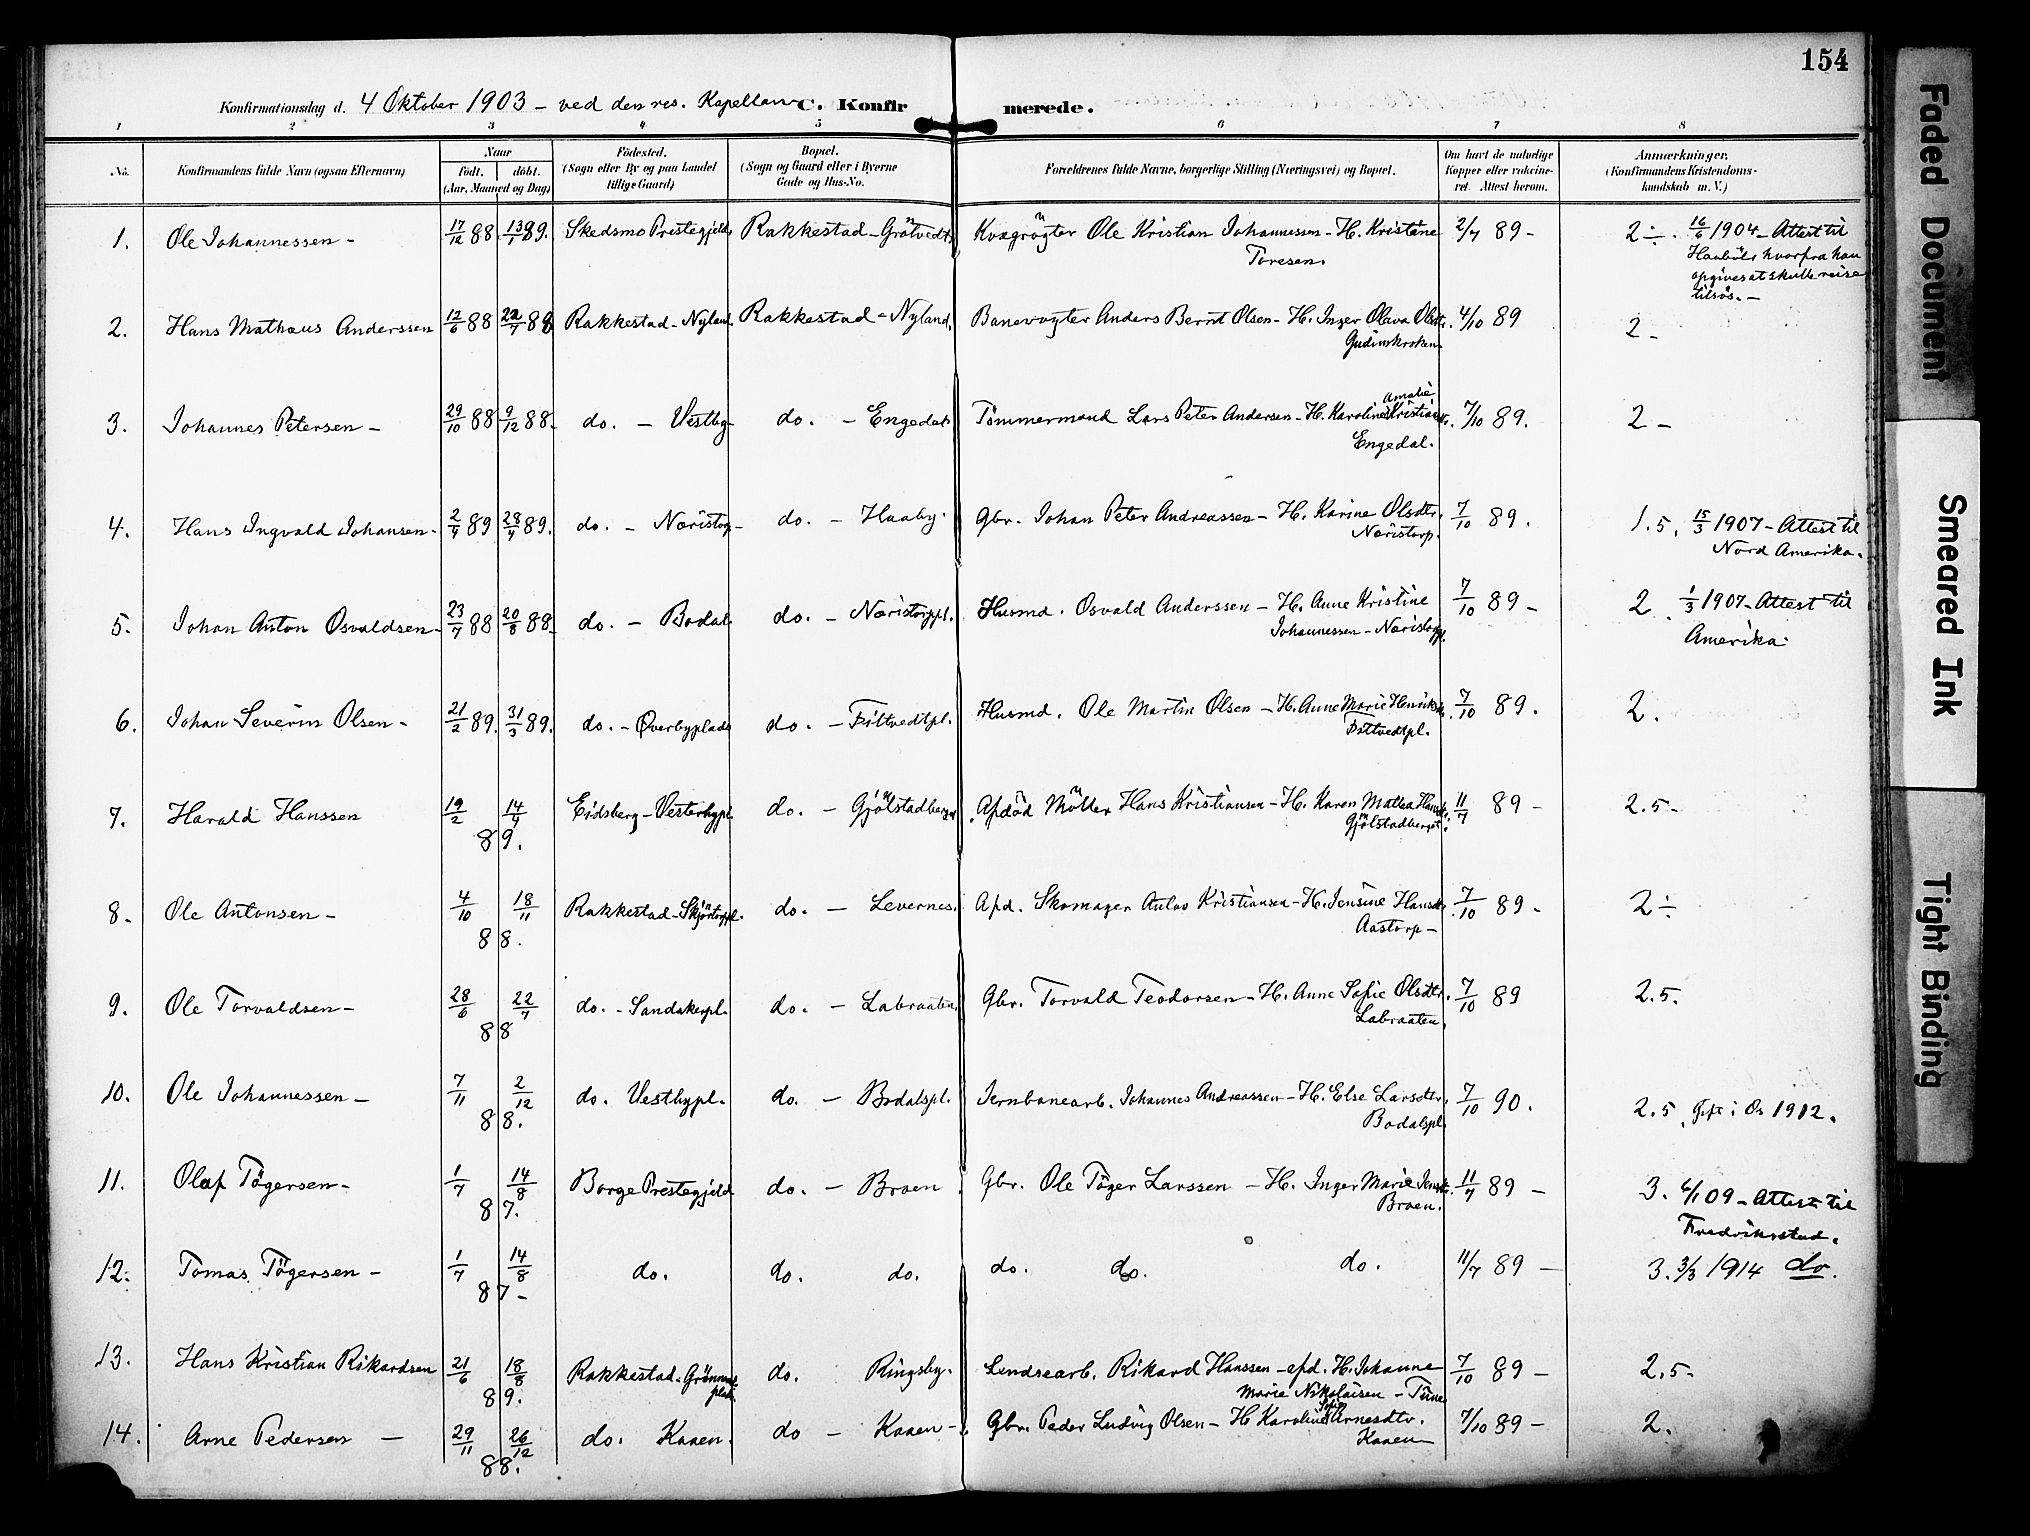 154
Konfirmationsdag d. 4 Oktober 1903 - ved den res. Kapellan C. Konfirmerede.
1 2 3 4 5 6 7 8
No. Konfirmandens fulde Navn (ogsaa Efternavn) Naar født. døbt. (Aar, Maaned og Dag) Fødested. (Sogn eller By og paa Landet tillige Gaard) Bopæl. (Sogn og Gaard eller i Byerne Gade og Hus-No. Forældrenes fulde Navne, borgerlige Stilling (Næringsvei) og Bopæl. Om havt de naturlige Kopper eller vakcineret. Attest herom. Anmærkninger. (Konfirmandens Kristendomskundskab m. V.)
1. Ole Johannessen - 17/12 88. 13/1 89. Skedsmo Prestegjeld Rakkestad - Grøtvedt Kvægrøgter Ole Kristian Johannessen - H. Kristine 2/7 89 - 2 ÷. 16/6 1904 - Attest til
Toresen. Haabøl, hvorfra han
opgives at skulle reise
tilsøs. -
2. Hans Mathæus Anderssen 12/6 88 22/7 88 Rakkestad - Nyland Rakkestad - Nyland, Banevogter Anders Bernt Olsen - H. Inger Olava Olsdtr. 4/10 89 2 -
3. Johannes Petersen - 29/10 88 9/12 88. do. - Vestby - do. - Engedal Tømmermand Lars Peter Andersen - H. Karoline Amalie Kristians. 7/10 89. 2 -
Engedal.
4. Hans Ingvald Johansen - 2/4 89 28/4 89. do. - Næristorp - do. - Haaby. Gbr. Johan Peter Andreassen - H. Karine Olsdtr. 7/10 89. 1.5. 15/3 1907 - Attest til
Næristorp. Nord Amerika.
5. Johan Anton Osvaldsen - 23/7 88 20/8 88 - do. - Bodal do. - Næristorppl. Husmd. Osvald Anderssen - H. Anne Kristine 7/10 89 - 2. 1/3 1907 - Attest til
Johannessen - Næristorppl. Amerika.
6. Johan Severin Olsen - 21/2 89. 31/3 89. do. - Øverbyplads do. - Fittvedtpl. Husmd. Ole Martin Olsen - H. Anne Marie Henriks. 7/10 89. 2.
Fittvedtpl.
7. Harald Hanssen 19/2 14/4 89. Eidsberg - Vesterbypl. do. - Gjølstadberget Afdød Møller Hans Kristiansen - H. Karen Mathea Hansdtr. 11/7 89 - 2.5 -
Gjølstadberget.
8. Ole Antonsen - 4/10 18/11 88. Rakkestad - Skjørtorppl. do. - Levernes. Afd. Skomager Anton Kristiansen - H. Jensine Hansdtr. 7/10 89 - 2 ÷
Aastorp -
9. Ole Torvaldsen - 28/6 22/7 88 do. - Sandakerpl. do. - Labraaten, Gbr. Torvald Teodorsen - H. Anne Sofie Olsdtr. 7/10 89 2.5.
Labraaten.
10. Ole Johannessen - 7/11 2/12 88. do. Vestbypl. do. - Bodalspl. Jernbanearb. Johannes Andreassen - H. Else Larsdtr. 7/10 90. 2.5. Gift i Os 1912.
Bodalspl.
11. Olaf Tøgersen - 1/7 14/8 87. Borge Prestegjeld do. - Braen Gbr. Ole Tøger Larssen - H. Inger Marie 11/7 89 - 3. 6/1 09 - Attest til
Braen. Fredrikstad.
12. Tomas Tøgersen - 1/7 14/8 87 - do. do. do. do. do. do. 11/7 89 - 3. 3/3 1914 do.
13. Hans Kristian Rikardsen 21/6 18/8 89. Rakkestad - do. Ringsby. Lendsearb. Rikard Hanssen - afd. H. Johanne 7/10 89 - 2.5 -
Marie Nikolaisen -
14. Arne Pedersen - 29/11 26/12 88. do. Kaaen. do - Kaaen - Gbr. Peder Ludvig Olsen - H. Karoline Sofie Arnesdtr. 7/10 89 - 2.
Kaaen
Faded Document
Smeared Ink
Tight Binding